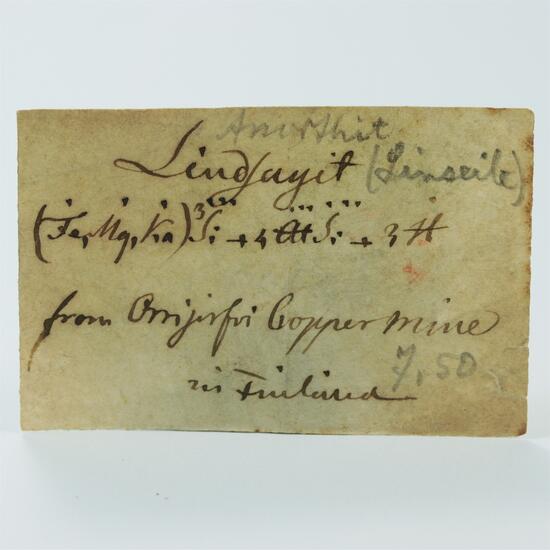 Anorthit
Lindsayit (Linseit)
(Fe, Mg, Ka)³Si + 4 Al Si + 3 H
from Orrijerfvi Copper mine
7,50
in Finland